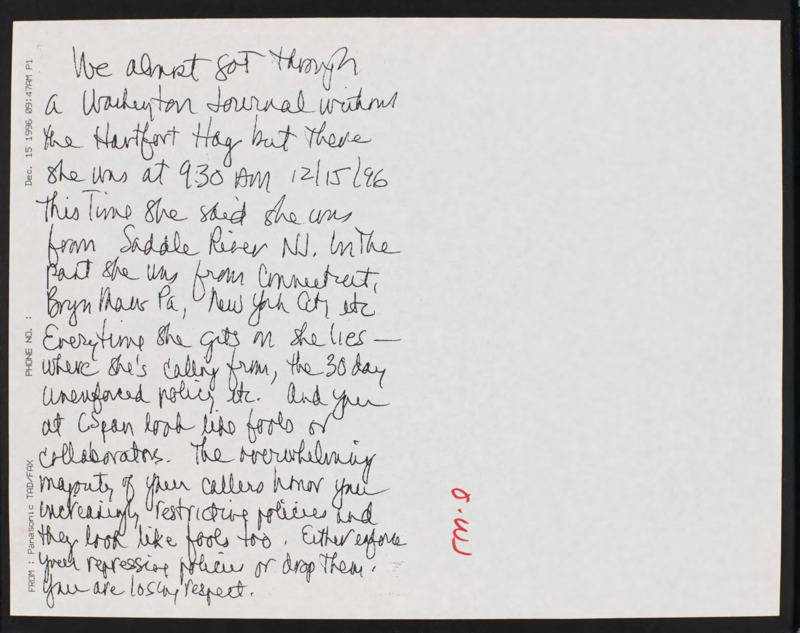 We almost got through
a Washington Journal without
the Hartfort Hag but there
she was at 9:30 AM 12/15/96
This Time she said she was
from Saddle River NJ. In The
past she was from Connecticut,
Bryn Mawr Pa, New York City etc
Everytime she gets on she lies —
where she's calling from, the 30 day
unenforced policy etc. And you
at CSpan look like fools or
collaborators. The overwhelming
majority of your callers honor your
increasingly restrictive policies and
they look like fools too. Either enforce
your repressive policies or drop Them.
You are losing respect.
FROM : Panasonic TAD/FAX PHONE NO. : Dec. 15 1996 09:47AM P1